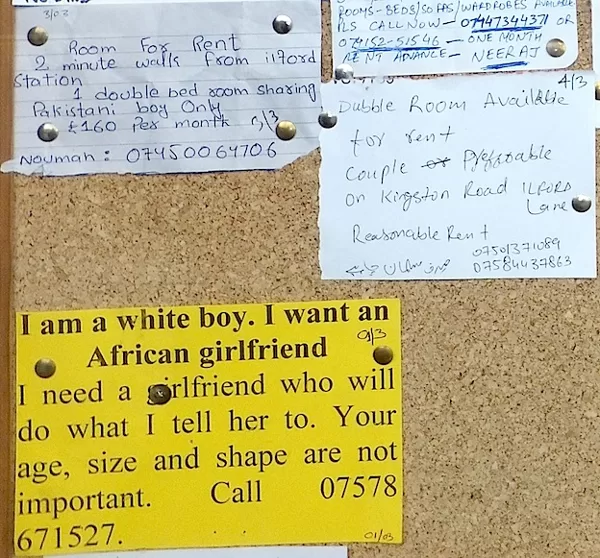 3/02
Room For Rent
2 minute walks from ilford
Station
1 double bed room sharing
Pakistani boy Only
£160 Per month 9/3
Nouman : 07450064706
ROOMS-BEDS/SOFAS/WARDROBES AVAILABLE
PLS CALL NOW - 07947344371 OR
079152-51546 - ONE MONTH
RENT ADVANCE - NEERAJ
4/3
Dubble Room Available
for rent
Couple or Prefarable
on Kingston Road ILFORD
Lane
Reasonable Rent
07501371089
07584437863
I am a white boy. I want an
African girlfriend
9/3
I need a girlfriend who will
do what I tell her to. Your
age, size and shape are not
important. Call 07578
671527.
01/03